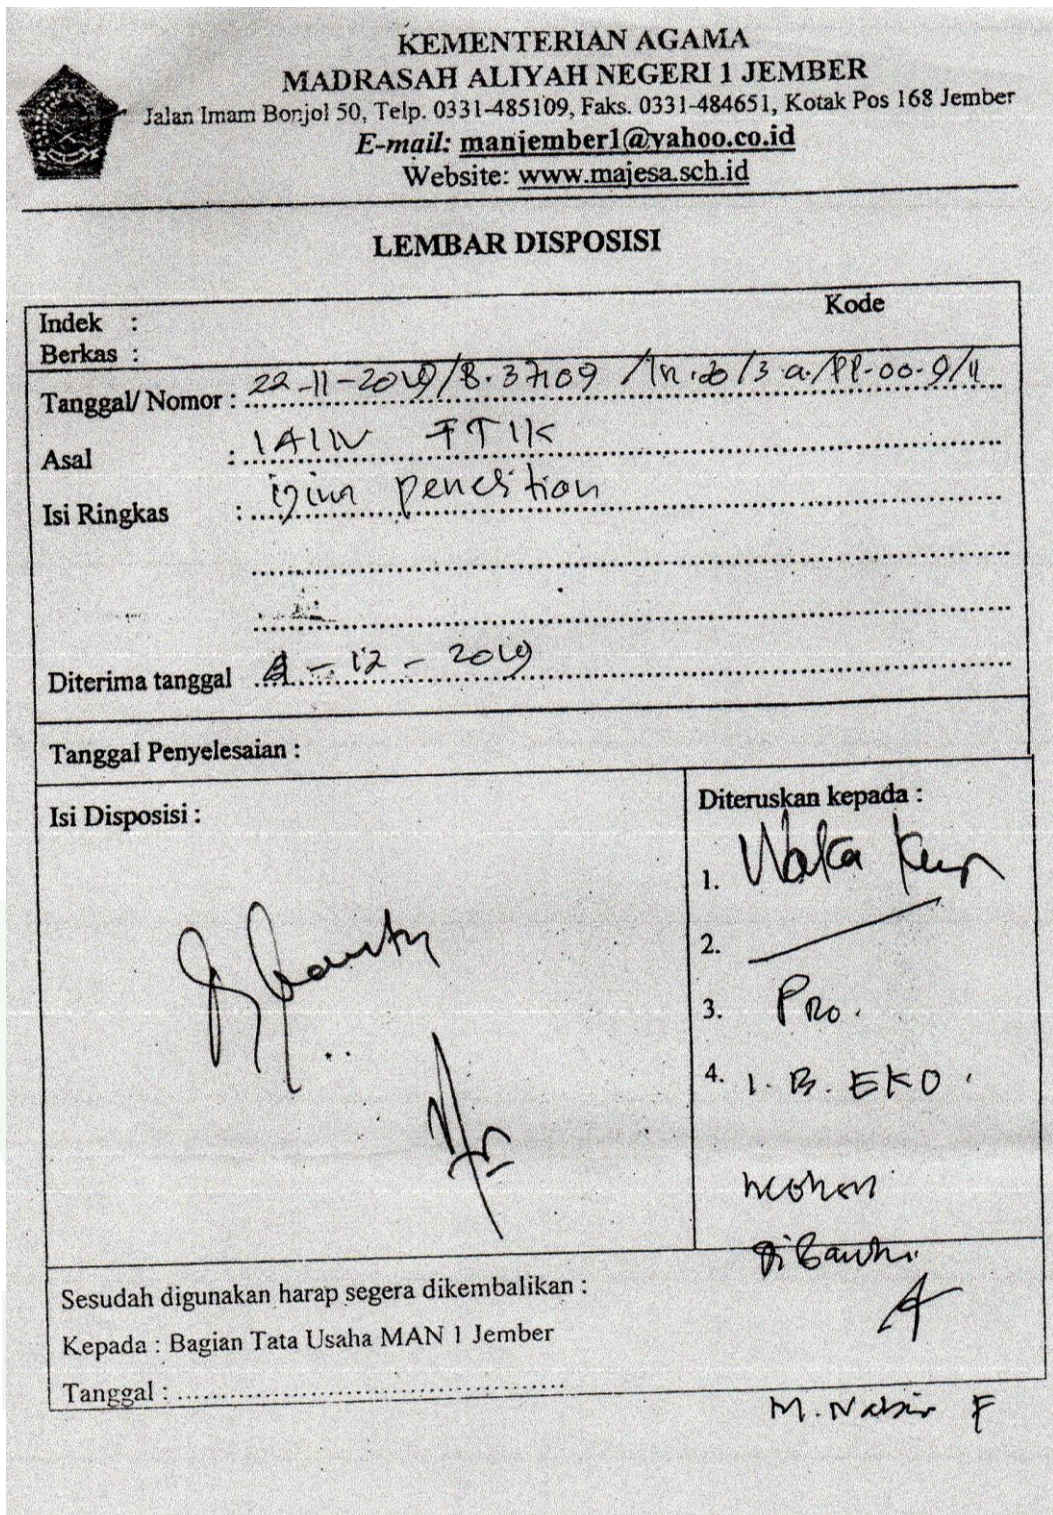 KEMENTERIAN AGAMA
MADRASAH ALIYAH NEGERI 1 JEMBER
Jalan Imam Bonjol 50, Telp. 0331-485109, Faks. 0331-484651, Kotak Pos 168 Jember
E-mail: manjember1@yahoo.co.id
Website: www.majesa.sch.id
LEMBAR DISPOSISI
Kode
Indek :
Berkas :
Tanggal/ Nomor : 22-11-2019/B.37109 /In.20/3.a/PP.00.9/11
Asal : IAIN FTIK
Isi Ringkas : izin penelitian
Diterima tanggal 2 - 12 - 2019
Tanggal Penyelesaian :
Isi Disposisi :
Diteruskan kepada :
1. Waka Kur
2.
3. Pro.
4. 1. B. EKO.
mohon
dibantu.
Sesudah digunakan harap segera dikembalikan :
Kepada : Bagian Tata Usaha MAN 1 Jember
Tanggal : ................................................
M. F